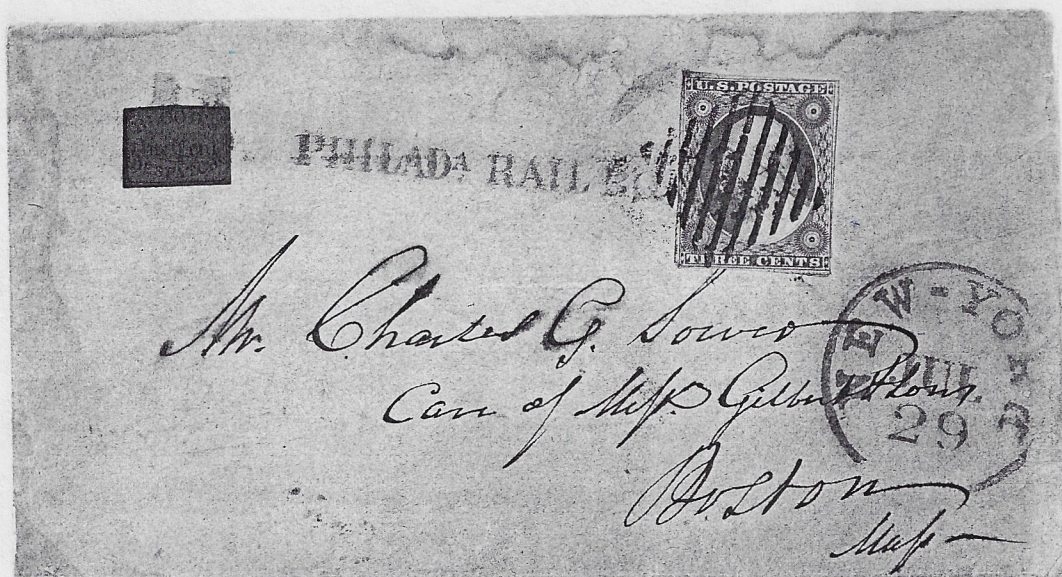 PHILADᴬ RAIL
U.S. POSTAGE
THREE CENTS
NEW-YORK
JUL
29
Mr. Charles G.
Care of Messrs. Gilbert & Sons.
Boston
Mass